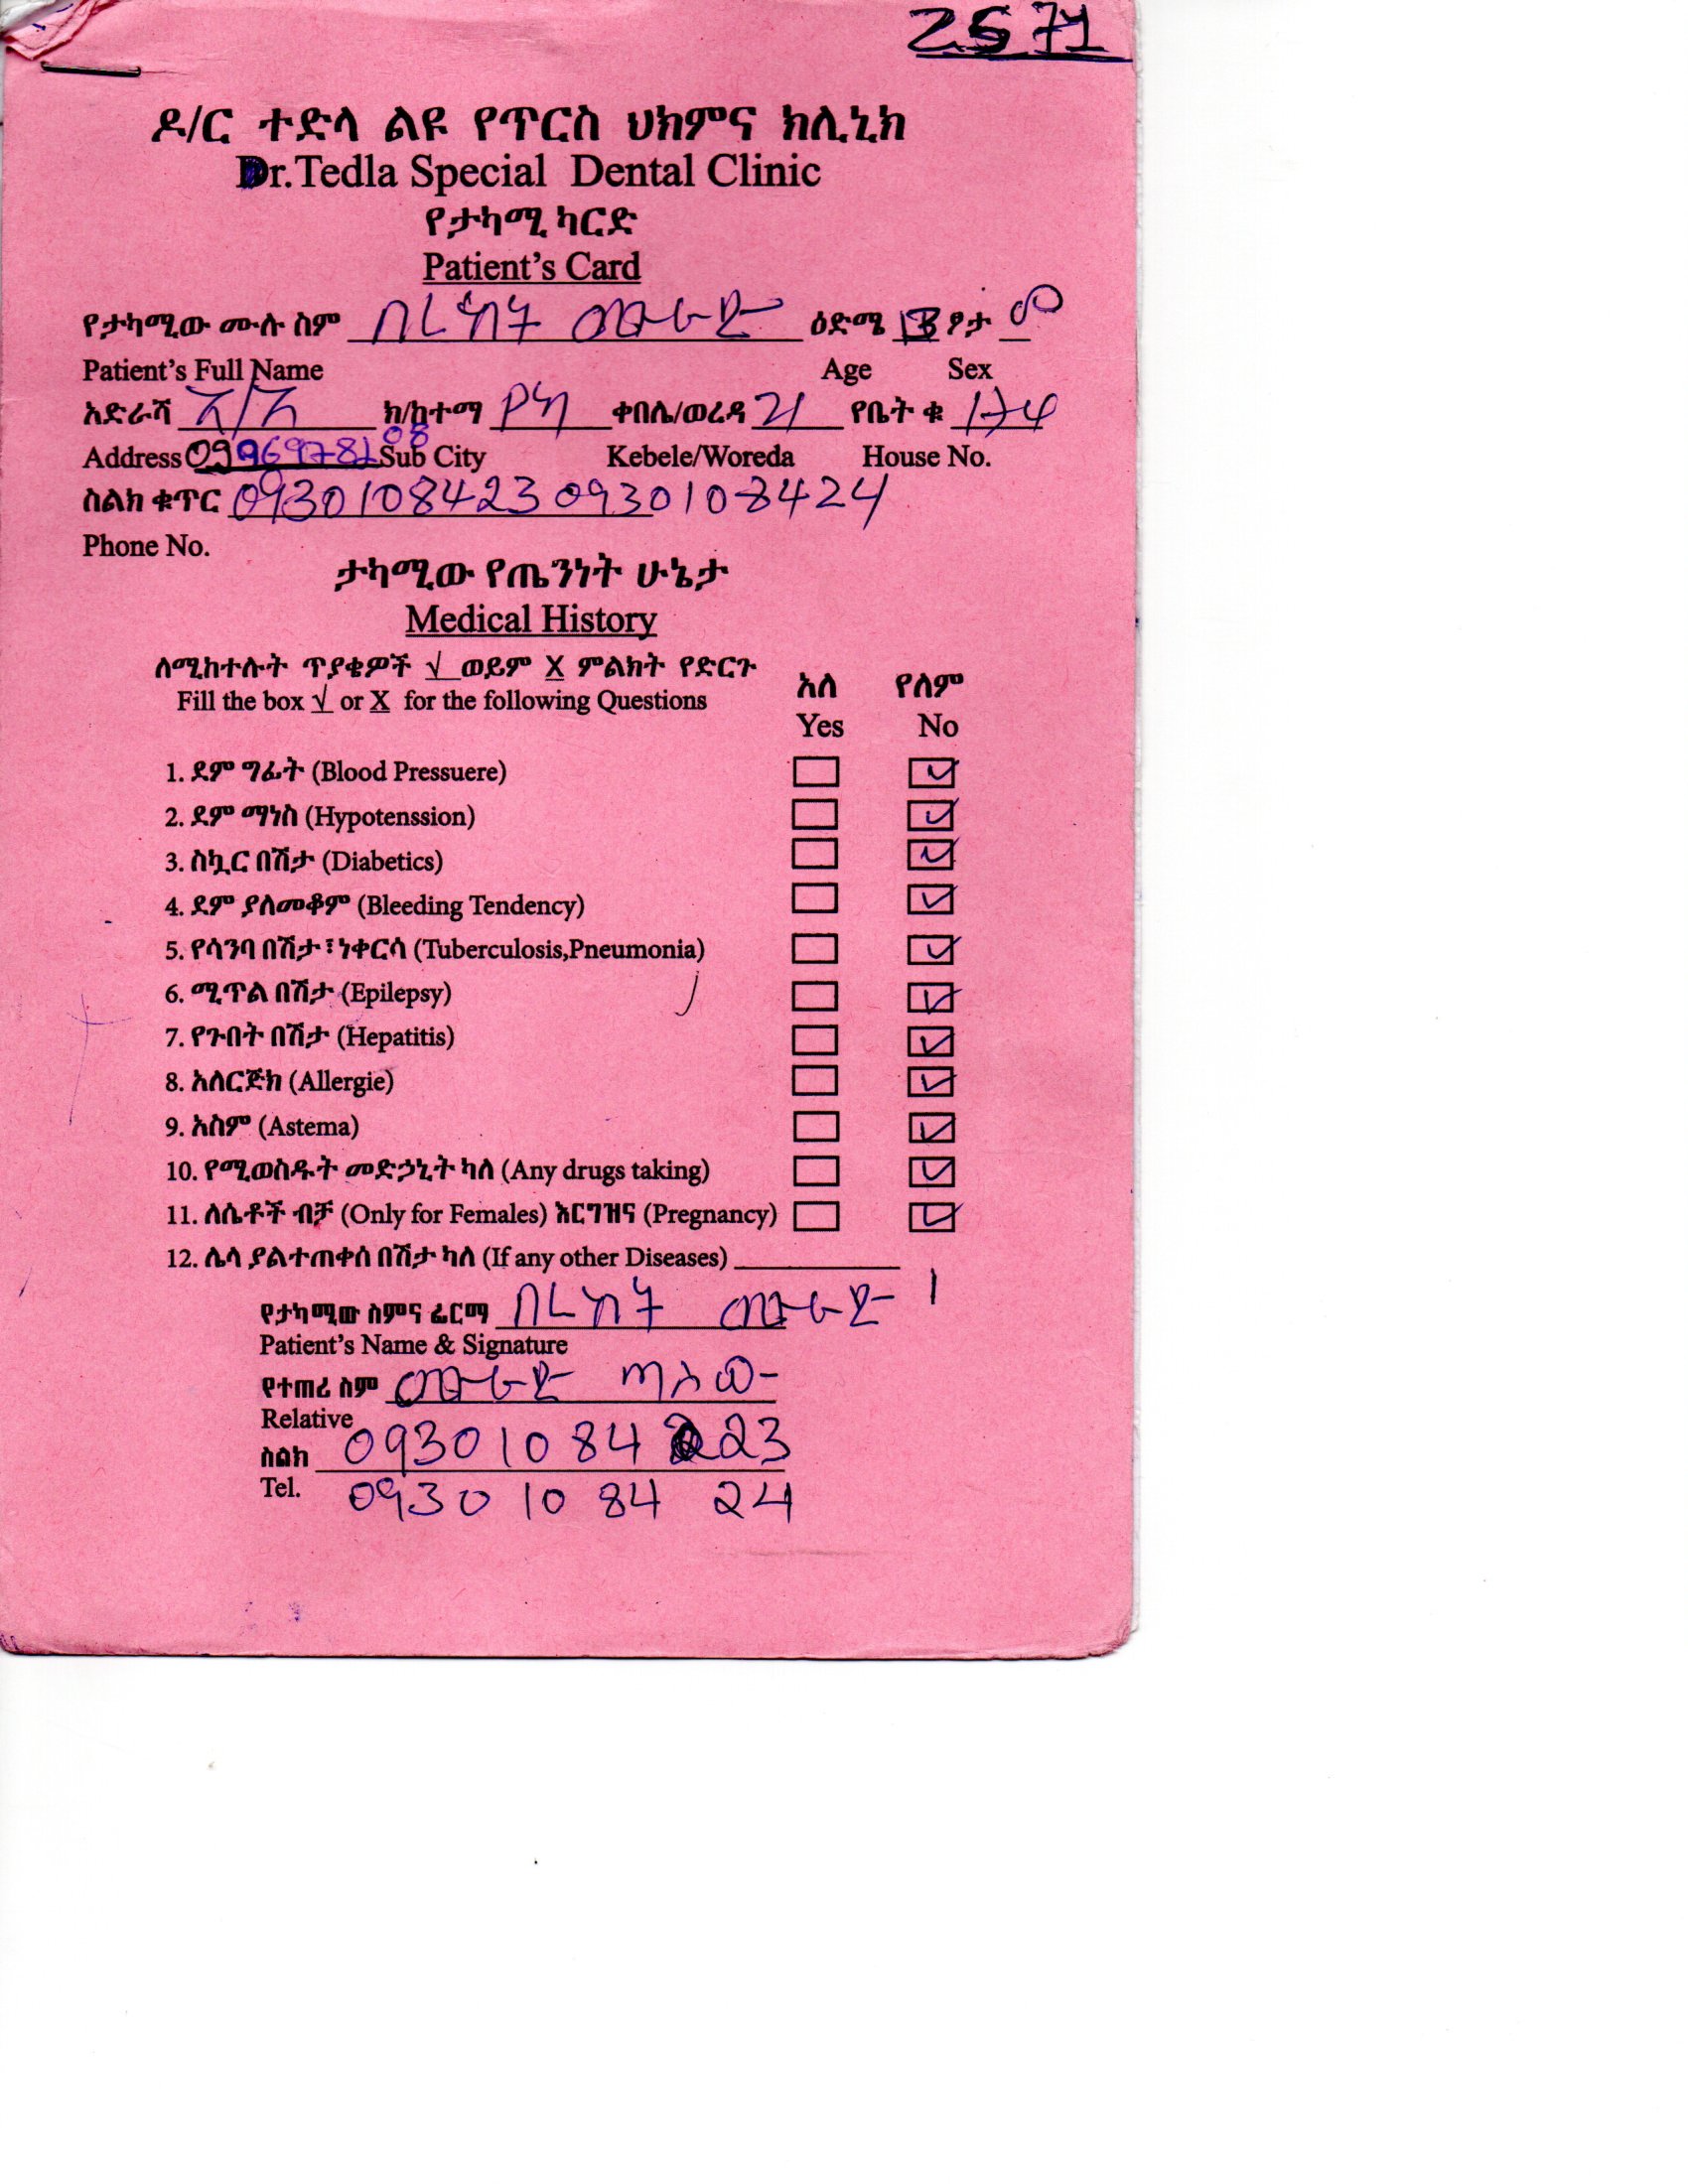 2571
ዶ/ር ተድላ ልዩ የጥርስ ህክምና ክሊኒክ
Dr.Tedla Special Dental Clinic
የታካሚ ካርድ
Patient's Card
የታካሚው ሙሉ ስም በረከት ሙራድ ዕድሜ 13 ፆታ ወ
Patient's Full Name Age Sex
አድራሻ አ/አ ክ/ከተማ የካ ቀበሌ/ወረዳ 21 የቤት ቁ
08
Address Sub City Kebele/Woreda House No.
ስልክ ቁጥር 0930108423 0930108424
Phone No.
ታካሚው የጤንነት ሁኔታ
Medical History
ለሚከተሉት ጥያቄዎች √ ወይም X ምልክት የድርጉ
Fill the box √ or X for the following Questions
አለ የለም
Yes No
1. ደም ግፊት (Blood Pressuere) ✓
2. ደም ማነስ (Hypotenssion) ✓
3. ስኳር በሽታ (Diabetics) ✓
4. ደም ያለመቆም (Bleeding Tendency) ✓
5. የሳንባ በሽታ፣ነቀርሳ (Tuberculosis,Pneumonia) ✓
6. ሚጥል በሽታ (Epilepsy) ✓
7. የጉበት በሽታ (Hepatitis) ✓
8. አለርጅክ (Allergie) ✓
9. አስም (Astema) ✓
10. የሚወስዱት መድኃኒት ካለ (Any drugs taking) ✓
11. ለሴቶች ብቻ (Only for Females) እርግዝና (Pregnancy) ✓
12. ሌላ ያልተጠቀሰ በሽታ ካለ (If any other Diseases)
የታካሚው ስምና ፊርማ በረከት ሙራድ
Patient's Name & Signature
የተጠሪ ስም ሙራድ ጣሰው
Relative
ስልክ 0930 10 84 23
Tel. 0930 10 84 24